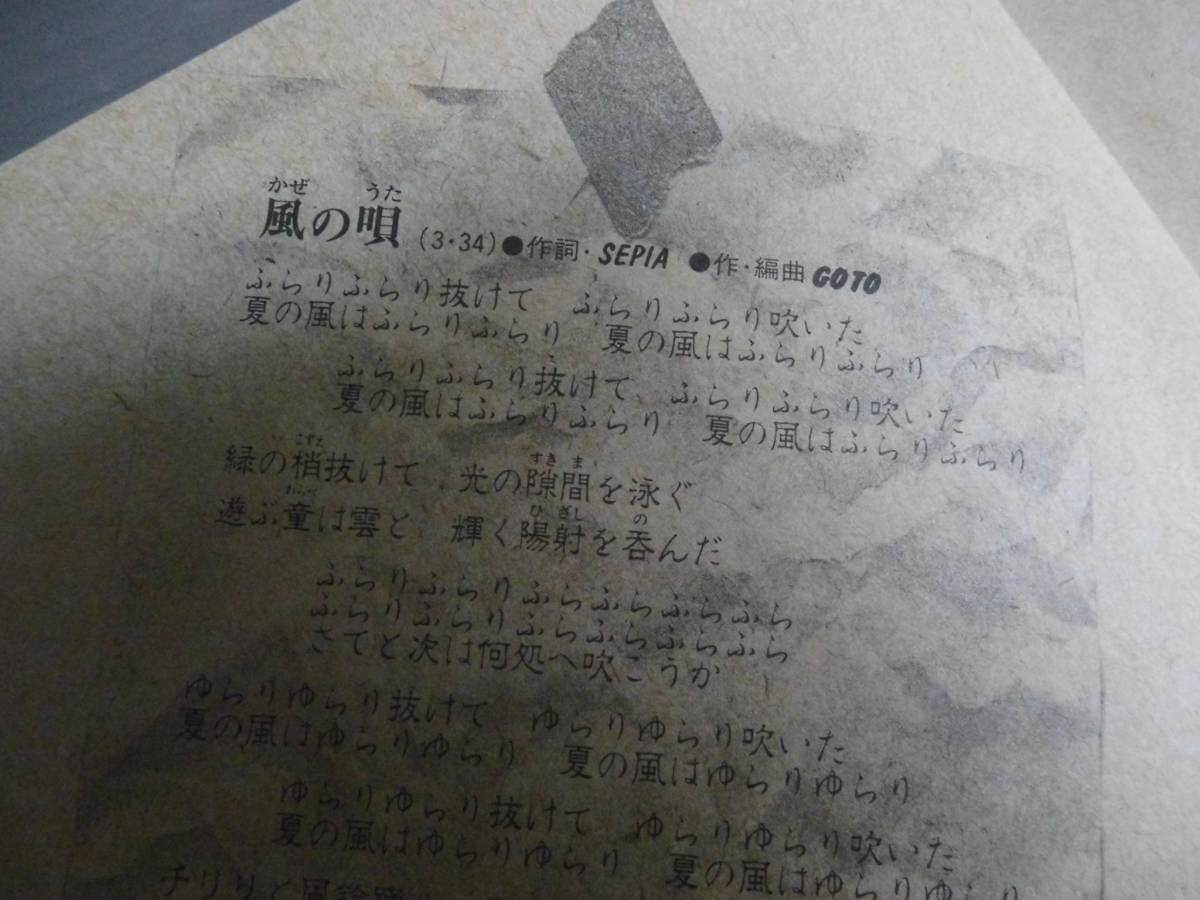 かぜ うた
風の唄 (3・34)●作詞・SEPIA ●作・編曲 GOTO
ふらりふらり抜けて ふらりふらり吹いた
夏の風はふらりふらり 夏の風はふらりふらり
ふらりふらり抜けて ふらりふらり吹いた
夏の風はふらりふらり 夏の風はふらりふらり
こずえ すきま
緑の梢抜けて 光の隙間を泳ぐ
わらべ ひざし の
遊ぶ童は雲と 輝く陽射を呑んだ
ふらりふらりふらふらふらふら
ふらりふらりふらふらふらふら
さてと次は何処へ吹こうか
ゆらりゆらり抜けて ゆらりゆらり吹いた
夏の風はゆらりゆらり 夏の風はゆらりゆらり
ゆらりゆらり抜けて ゆらりゆらり吹いた
夏の風はゆらりゆらり 夏の風はゆらりゆらり
チリリと風鈴